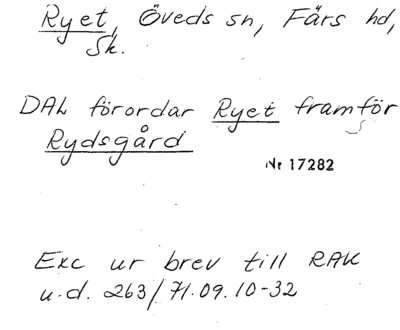 Ryet, Öveds sn, Färs hd,
Sk.
DAL förordar Ryet framför
Rydsgård
Nr 17282
Exc ur brev till RAK
u.d. 263/71.09.10-32